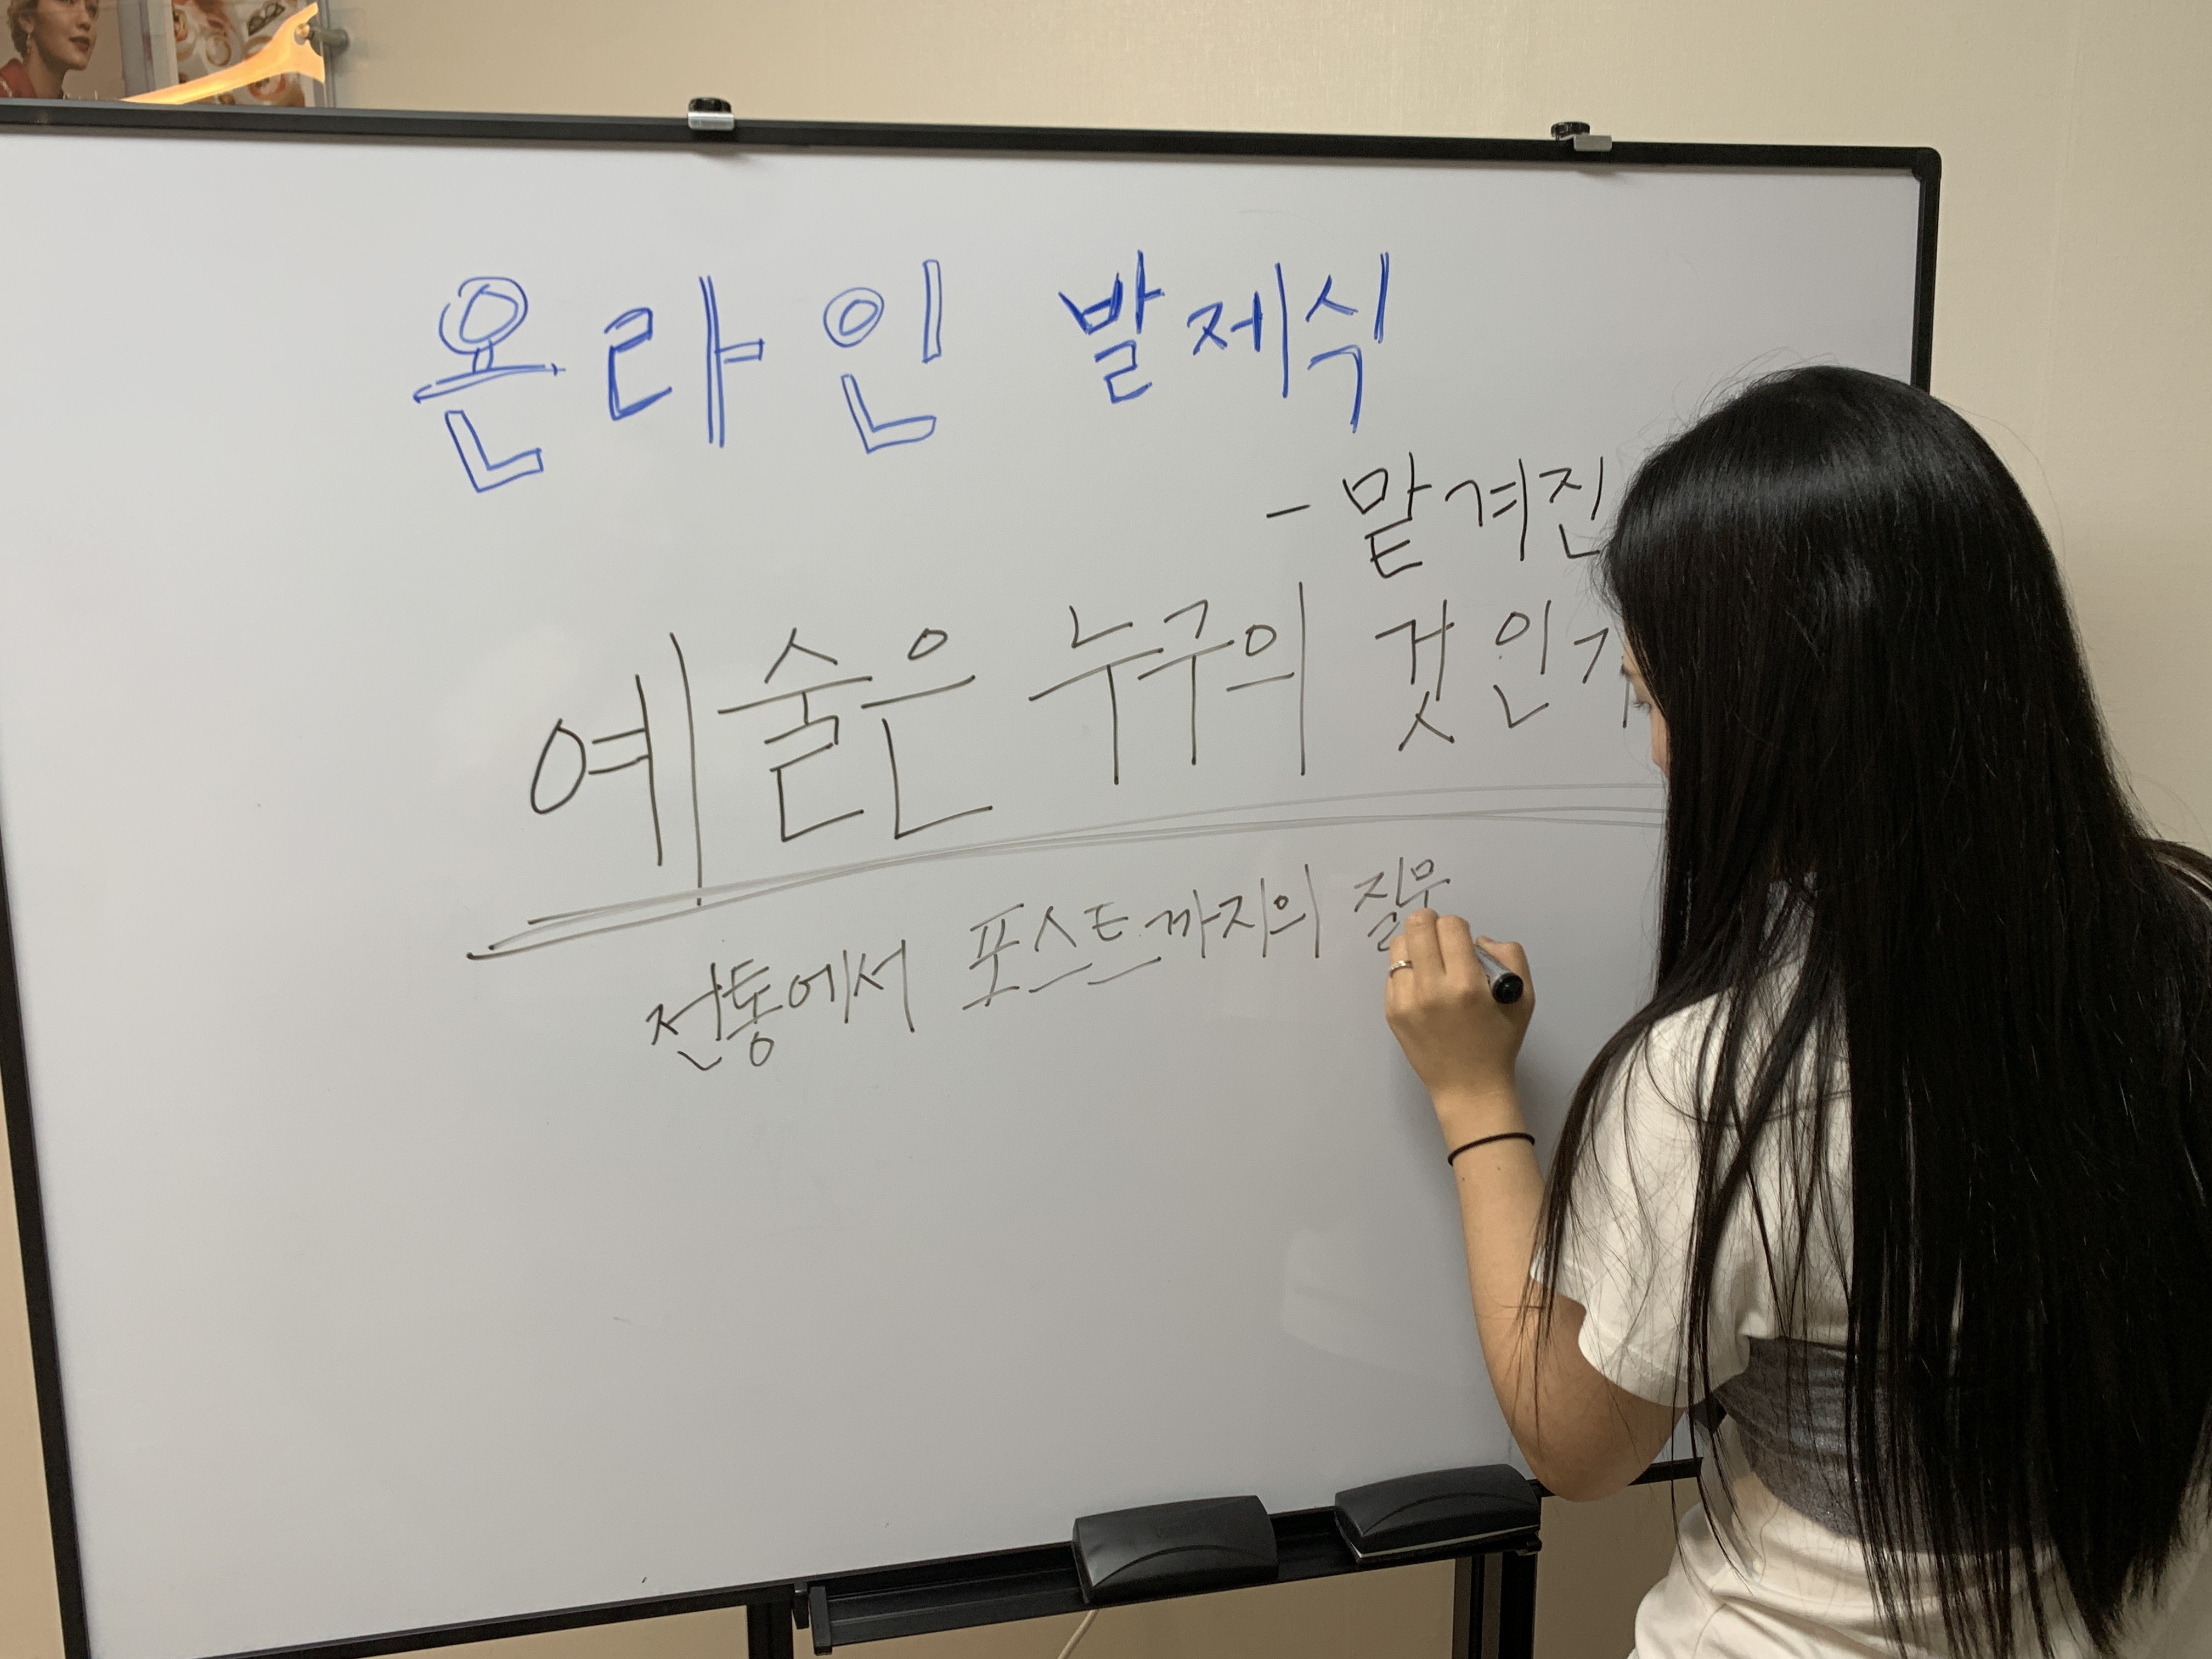 온라인 발제식
- 맡겨진
예술은 누구의 것인가
전통에서 포스트까지의 질무